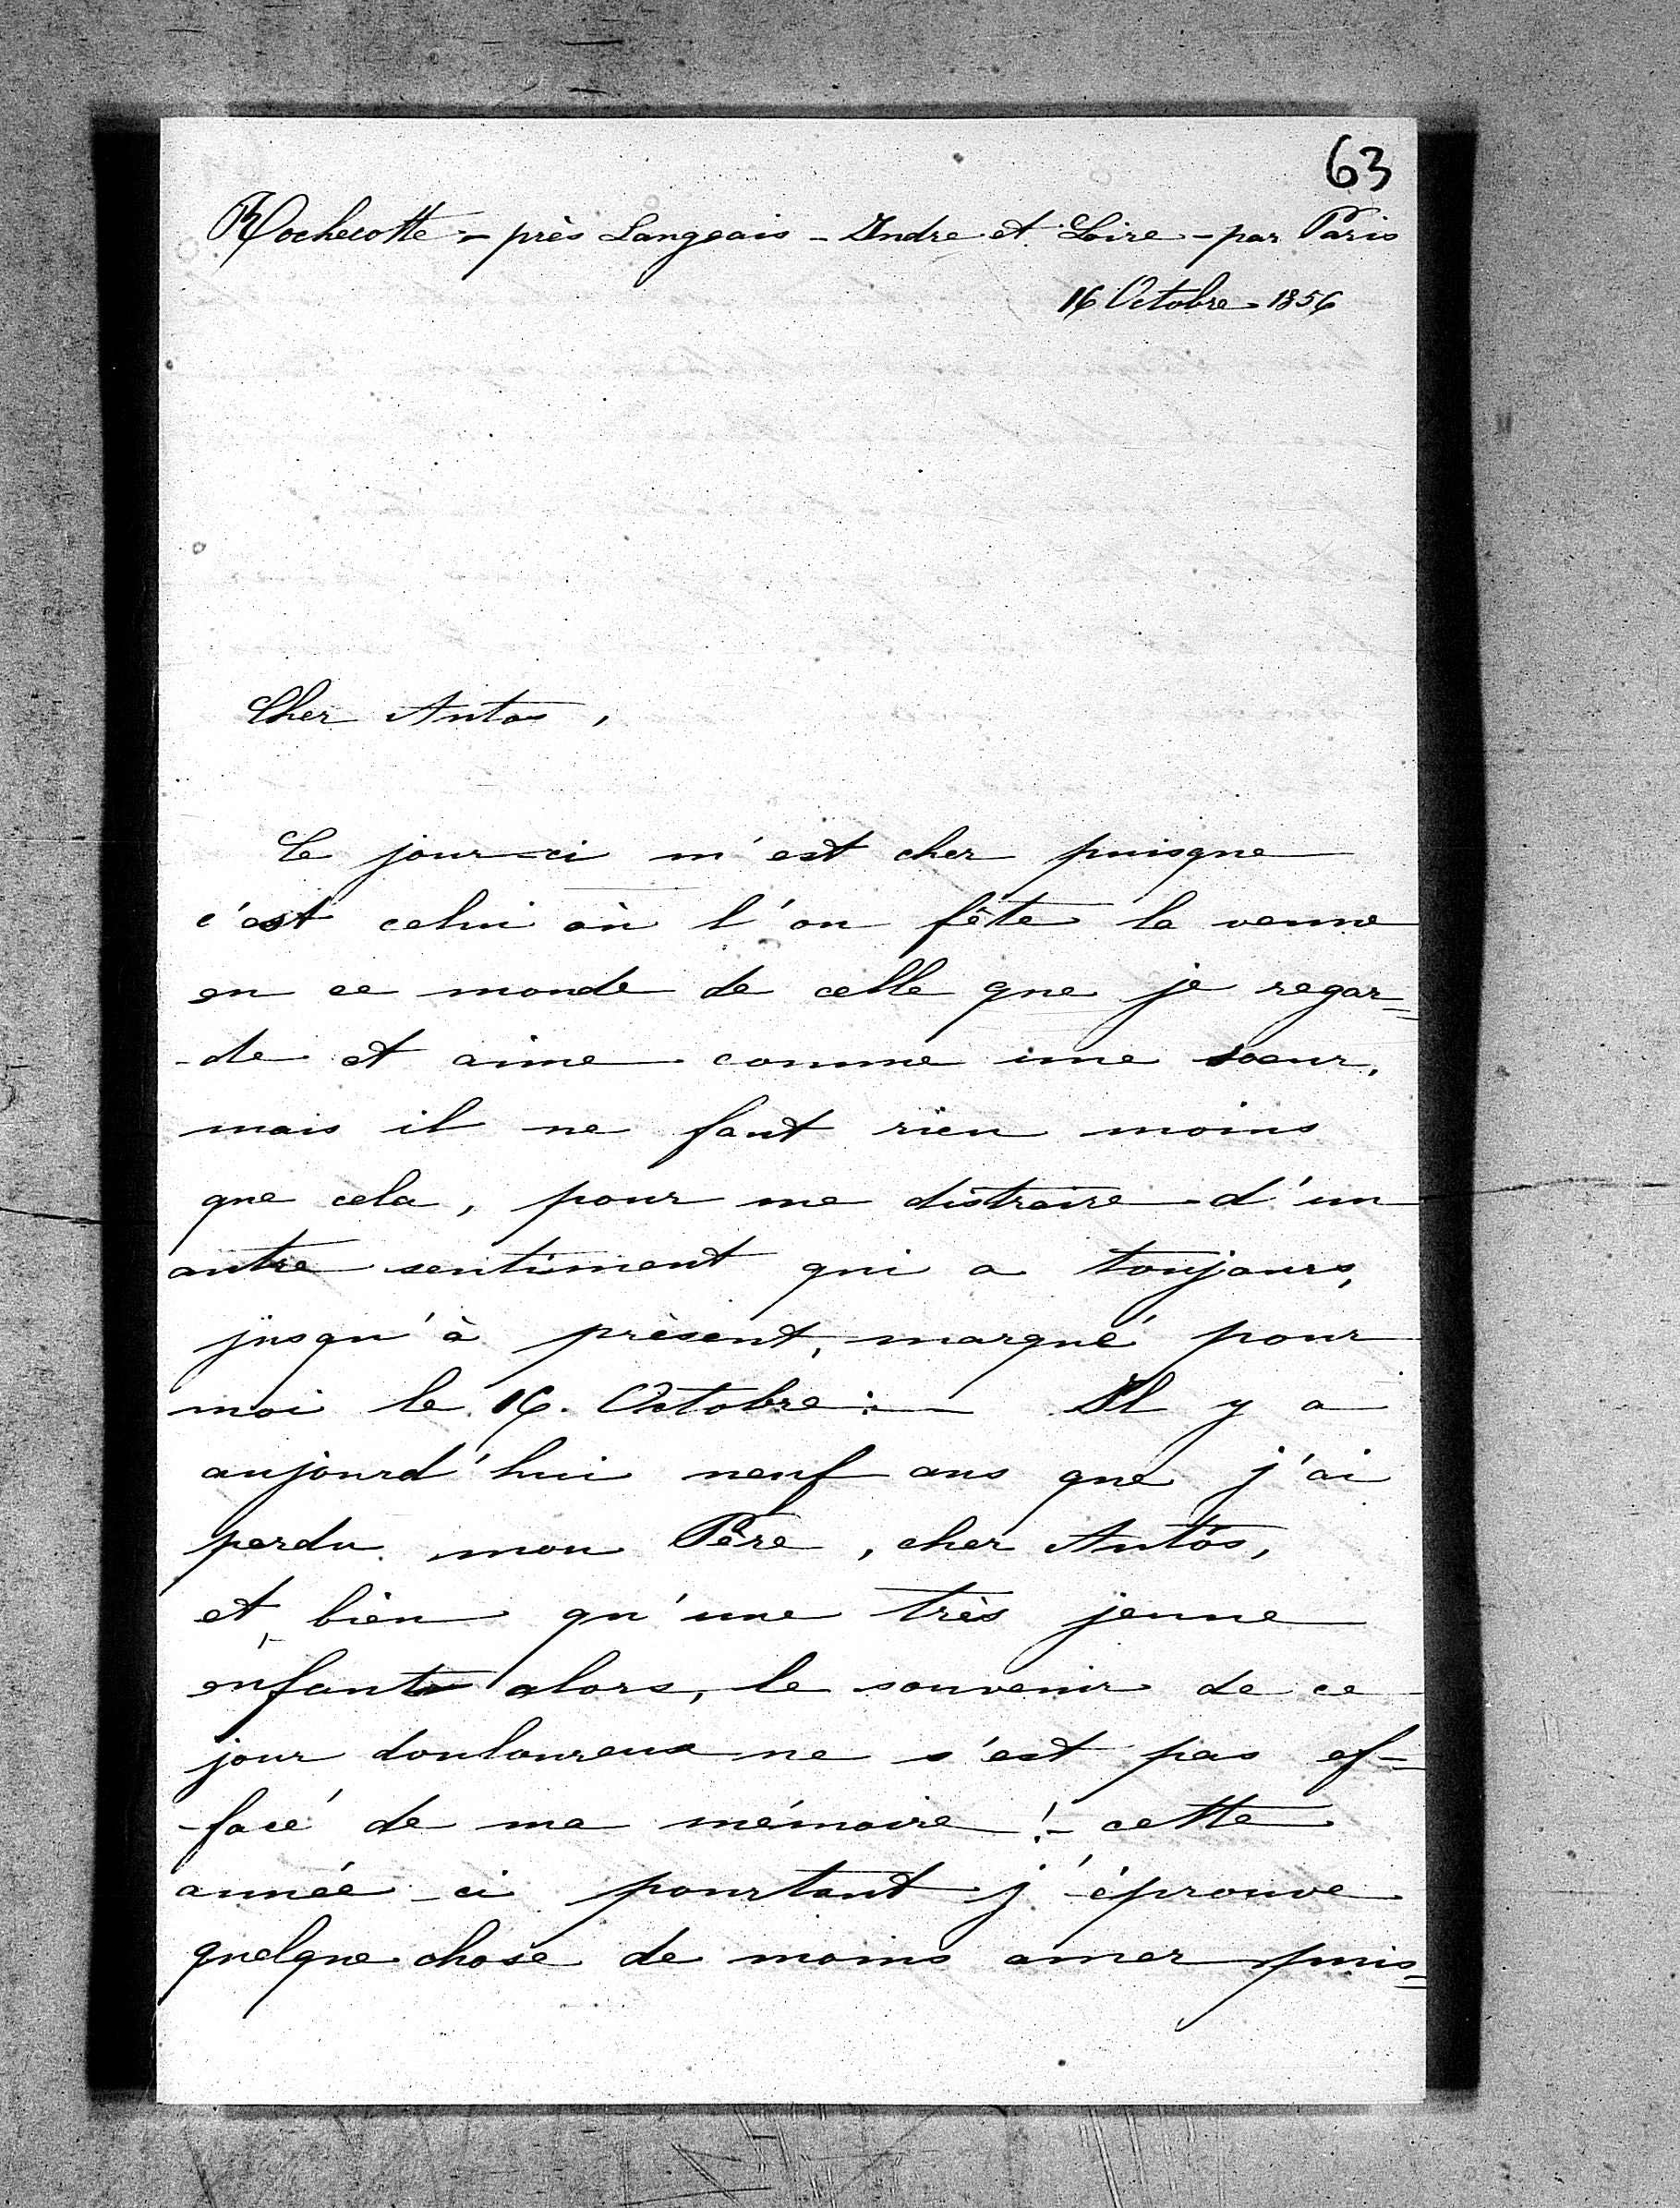 63
Rochecotte - près Langeais - Indre et Loire - par Paris
16 Octobre - 1856
Cher Antos,
Ce jour-ci m'est cher puisque
c'est celui où l'on fête la venue
en ce monde de celle que je regar=
-de et aime comme une soeur,
mais il ne faut rien moins
que cela, pour me distraire d'un
autre sentiment qui a toujours,
jusqu'à présent, marqué pour
moi le 16. Octobre : - Il y a
aujourd'hui neuf ans que j'ai
perdu mon Père, cher Antos,
et, bien qu'une très jeune
enfant alors, le souvenir de ce
jour douloureux ne s'est pas ef-
-facé de ma mémoire ! - cette
année-ci pourtant j'éprouve
quelque chose de moins amer puis=